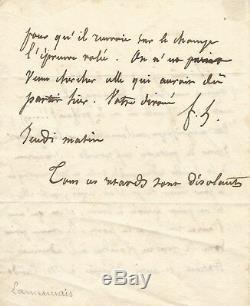 pour qu'il renvoie sur le champ
l'épreuve volée. On n'est point
venu chercher celle qui aurait dû
partir hier. Votre dévoué
f. L.
Jeudi matin
Tous ces retards sont désolants
Lamennais